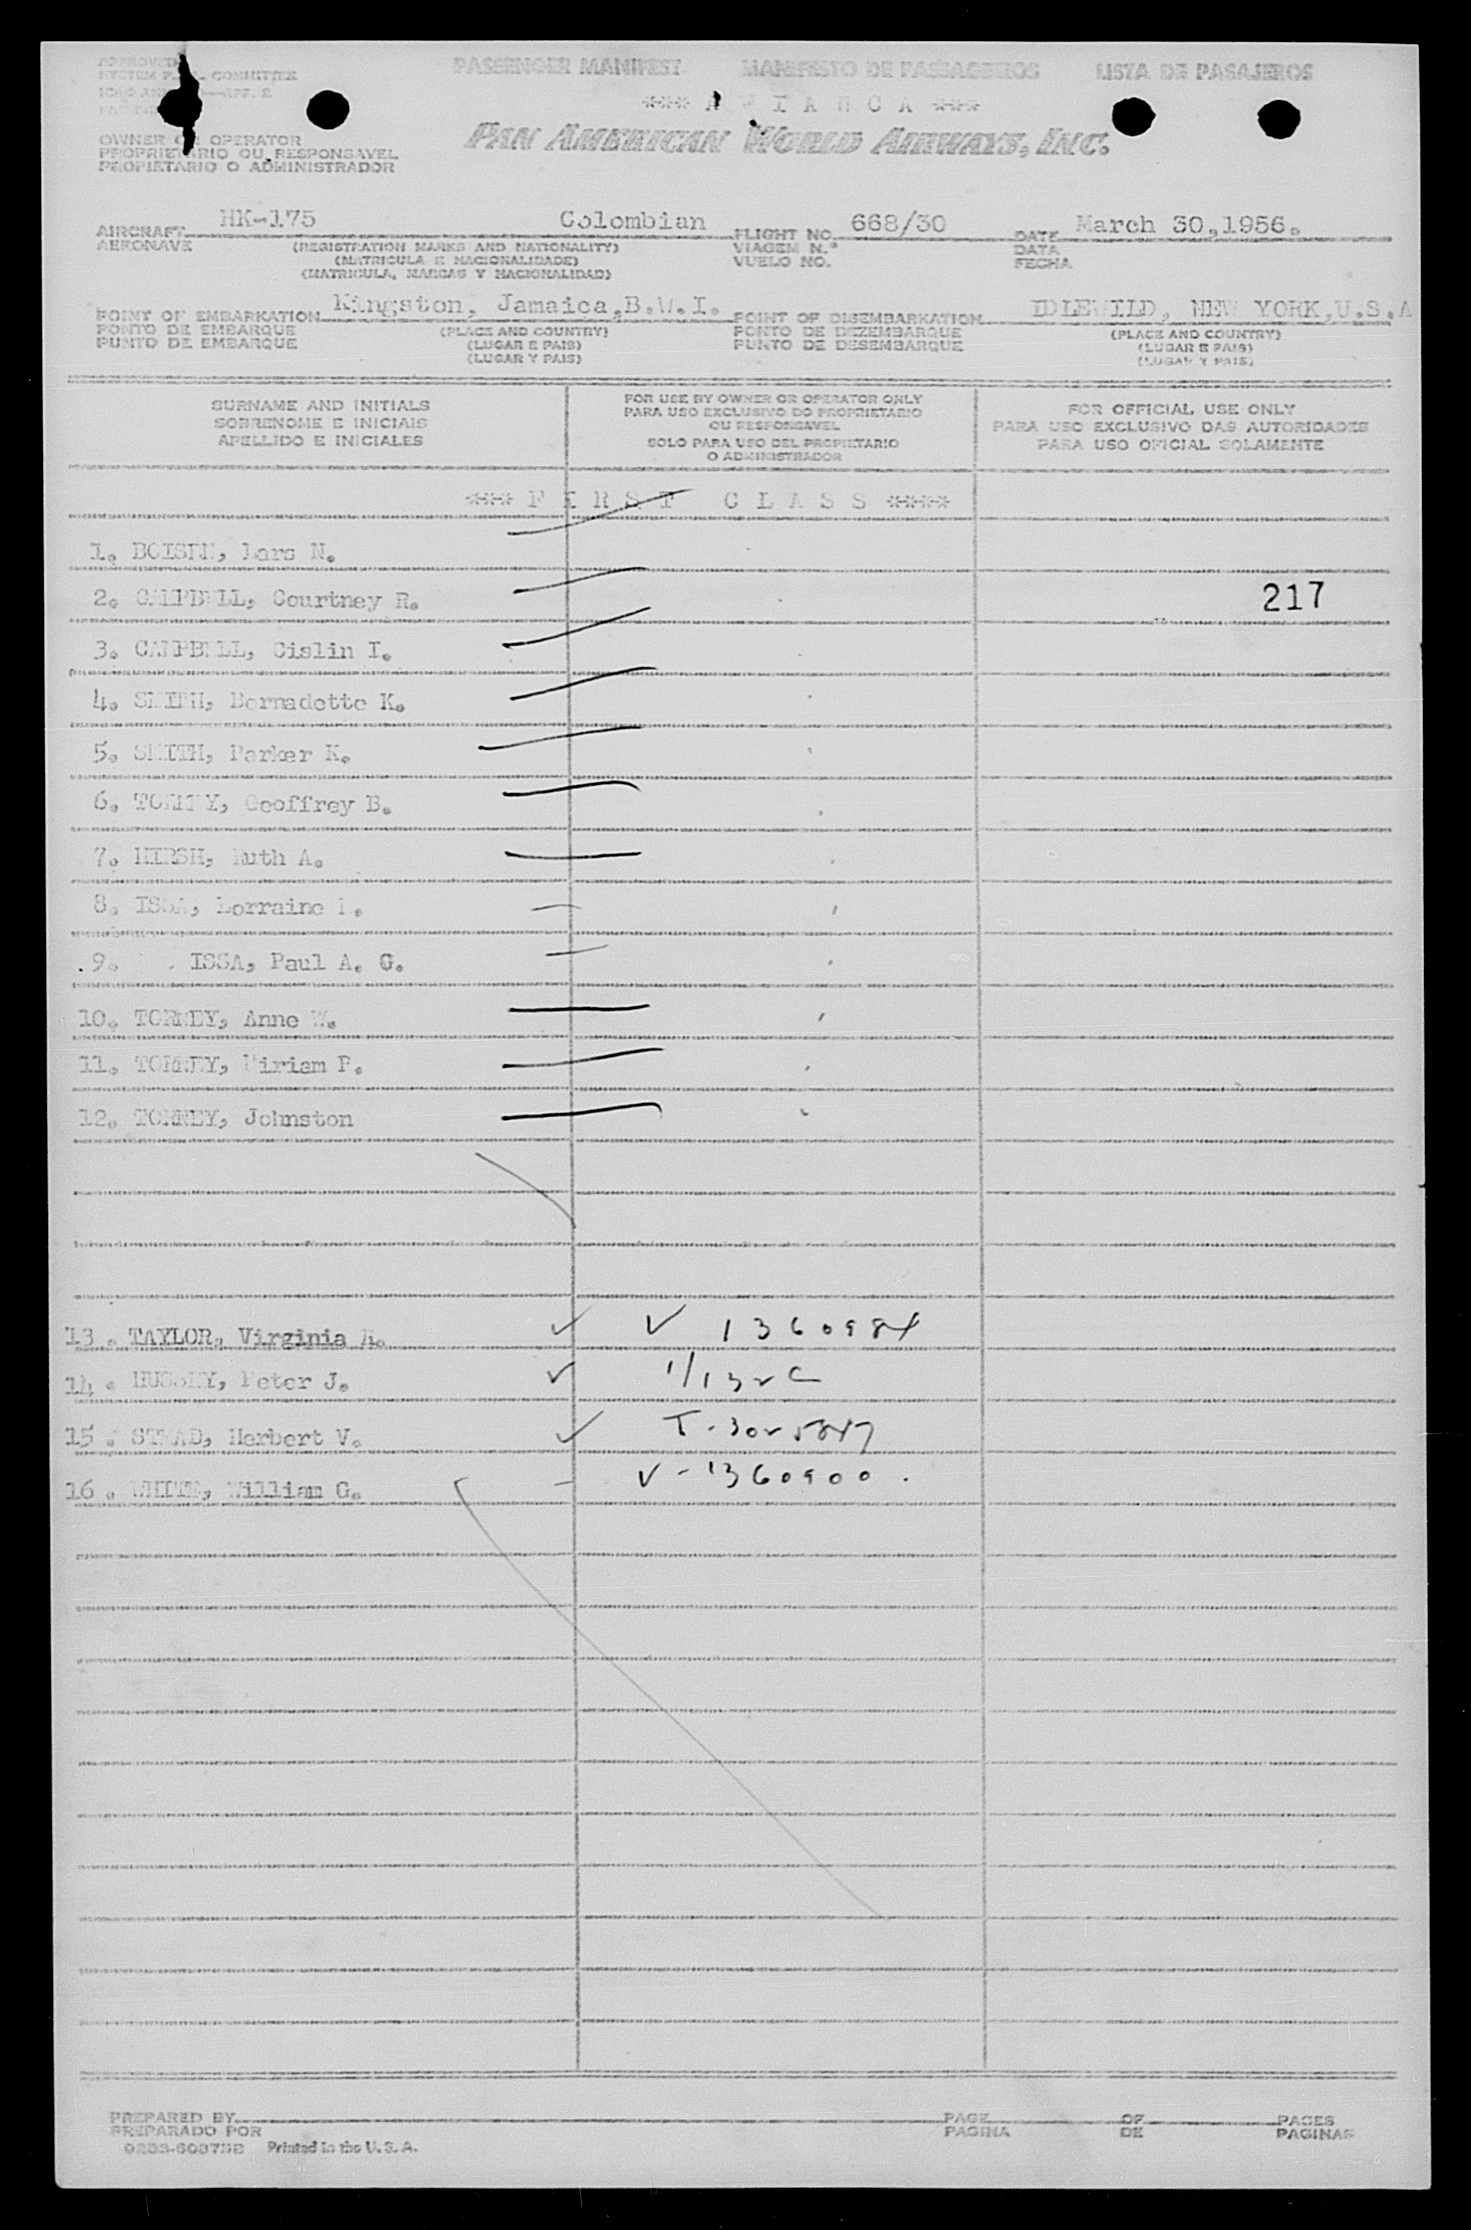 PASSENGER MANIFEST MANIFESTO DE PASSAGEIROS LISTA DE PASAJEROS
APPROVED
SYSTEM COMMITTEE
*** A V I A N C A ***
PAN AMERICAN WORLD AIRWAYS, INC.
OWNER OR OPERATOR
PROPRIETARIO OU RESPONSAVEL
PROPIETARIO O ADMINISTRADOR
AIRCRAFT HK-175 Colombian FLIGHT NO. 668/30 DATE March 30,1956.
AERONAVE (REGISTRATION MARKS AND NATIONALITY) VIAGEM N.º DATA
(MATRICULA E NACIONALIDADE) VUELO NO. FECHA
(MATRICULA, MARCAS Y NACIONALIDAD)
POINT OF EMBARKATION Kingston, Jamaica,B.W.I. POINT OF DISEMBARKATION IDLEWILD, NEW YORK,U.S.A
PONTO DE EMBARQUE (PLACE AND COUNTRY) PONTO DE DEZEMBARQUE (PLACE AND COUNTRY)
PUNTO DE EMBARQUE (LUGAR E PAIS) PUNTO DE DESEMBARQUE (LUGAR E PAIS)
(LUGAR Y PAIS) (LUGAR Y PAIS)
SURNAME AND INITIALS
SOBRENOME E INICIAIS
APELLIDO E INICIALES
FOR USE BY OWNER OR OPERATOR ONLY
PARA USO EXCLUSIVO DO PROPRIETARIO
OU RESPONSAVEL
SOLO PARA USO DEL PROPIETARIO
O ADMINISTRADOR
FOR OFFICIAL USE ONLY
PARA USO EXCLUSIVO DAS AUTORIDADES
PARA USO OFICIAL SOLAMENTE
*** F I R S T C L A S S ****
1. Lars N.
2. CAMPBELL, Courtney R. 217
3. CAMPBELL, Cislin I.
4. SMITH, Bernadette K.
5. SMITH, Parker K.
6. TORREY, Geoffrey B.
7. HIRSH, Ruth A.
8. ISSA, Lorraine
9. ISSA, Paul A. G.
10. TORREY, Anne W.
11. TORREY, Miriam P.
12. TORREY, Johnston
13. TAYLOR, Virginia A. ✓ V 1360984
14. HUSSEY, Peter J. ✓
15. STEAD, Herbert V. ✓
16. WHITE, William G. - V-1360900.
PREPARED BY PAGE OF PAGES
PREPARADO POR PAGINA DE PAGINAS
Printed in the U.S.A.